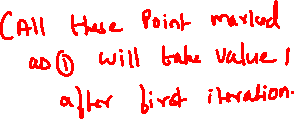 (All these Point marked
as ① will take value 1
after first iteration.